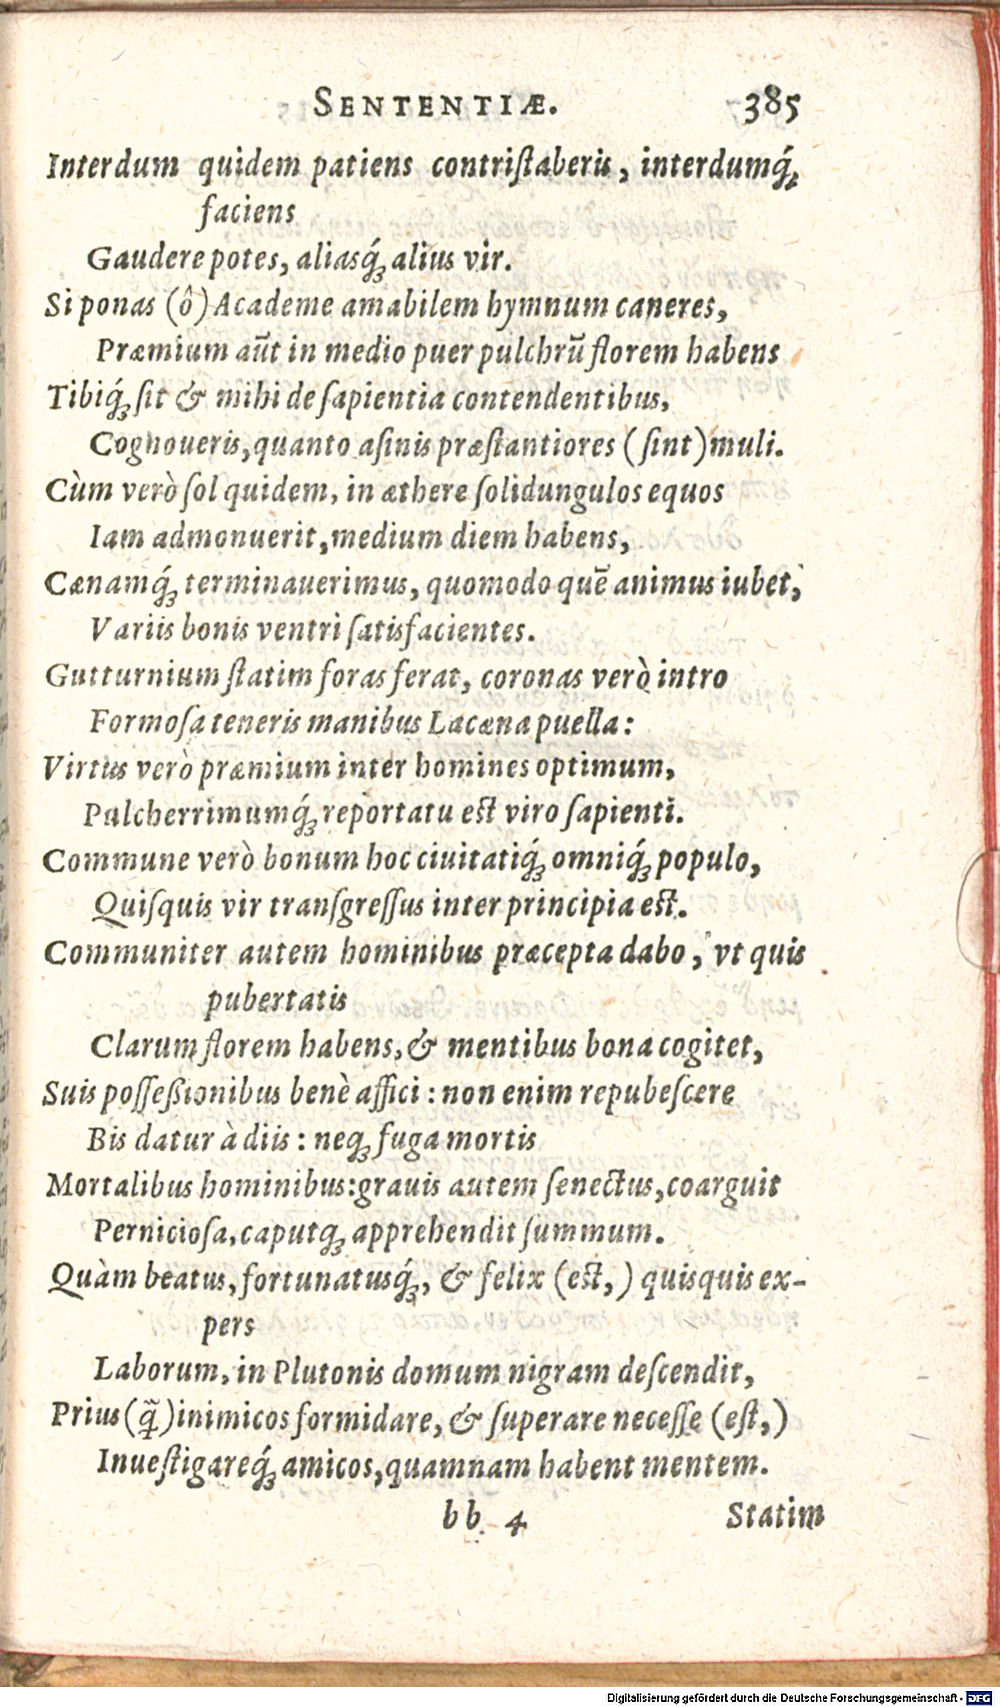 SENTENTIÆ. 385
Interdum quidem patiens contriſtaberis, interdumq́;
faciens
Gaudere potes, aliasq́; alius vir.
Si ponas (ô) Academe amabilem hymnum caneres,
Præmium aūt in medio puer pulchrū florem habens
Tibiq́; ſit & mihi de ſapientia contendentibus,
Cognoueris, quanto aſinis præſtantiores (ſint) muli.
Cùm verò ſol quidem, in æthere ſolidungulos equos
Iam admonuerit, medium diem habens,
Cænamq́; terminauerimus, quomodo quē animus iubet,
Variis bonis ventri ſatisfacientes.
Gutturnium ſtatim foras ferat, coronas verò intro
Formoſa teneris manibus Lacæna puella:
Virtus verò præmium inter homines optimum,
Pulcherrimumq́; reportatu eſt viro ſapienti.
Commune verò bonum hoc ciuitatiq́; omniq́; populo,
Quiſquis vir tranſgreſſus inter principia eſt.
Communiter autem hominibus præcepta dabo, vt quis
pubertatis
Clarum florem habens, & mentibus bona cogitet,
Suis poſſeßionibus benè affici: non enim repubeſcere
Bis datur à diis: neq; fuga mortis
Mortalibus hominibus: grauis autem ſenectus, coarguit
Pernicioſa, caputq; apprehendit ſummum.
Quàm beatus, fortunatusq́;, & felix (eſt,) quiſquis ex-
pers
Laborum, in Plutonis domum nigram deſcendit,
Prius (q̃) inimicos formidare, & ſuperare neceſſe (eſt,)
Inueſtigareq́; amicos, quamnam habent mentem.
bb 4 Statim
Digitalisierung gefördert durch die Deutsche Forschungsgemeinschaft - DFG